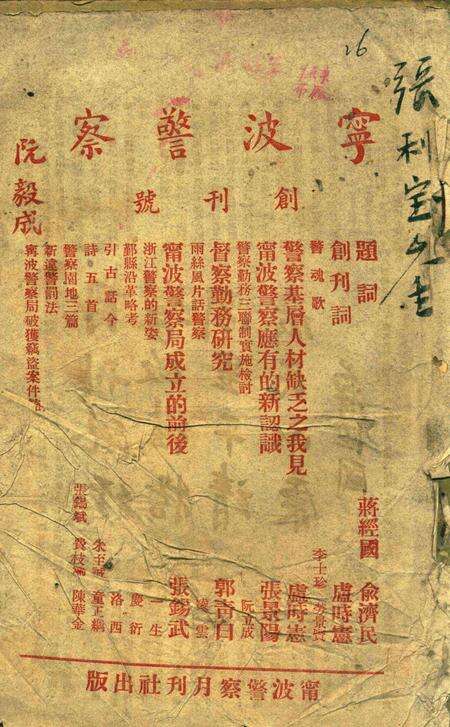 26
張利
寧波警察
創刊號
阮毅成
題詞 蔣經國 俞濟民
創刊詞 盧時憲
警魂歌 李士珍
警察基層人材缺乏之我見 盧時憲
甯波警察應有的新認識 張景陽
警察勤務三聯制實施檢討 阮立成
督察勤務研究 郭南白
雨絲風片話警察 凌雲
甯波警察局成立的前後 張錫武
浙江警察的新姿 一生
鄞縣沿革略考 慶衍
引古話今 洛西
詩五首
警察園地三篇
新違警罰法
甯波警察局破獲竊盜案件
張錫斌
陳華金
甯波警察月刊社出版